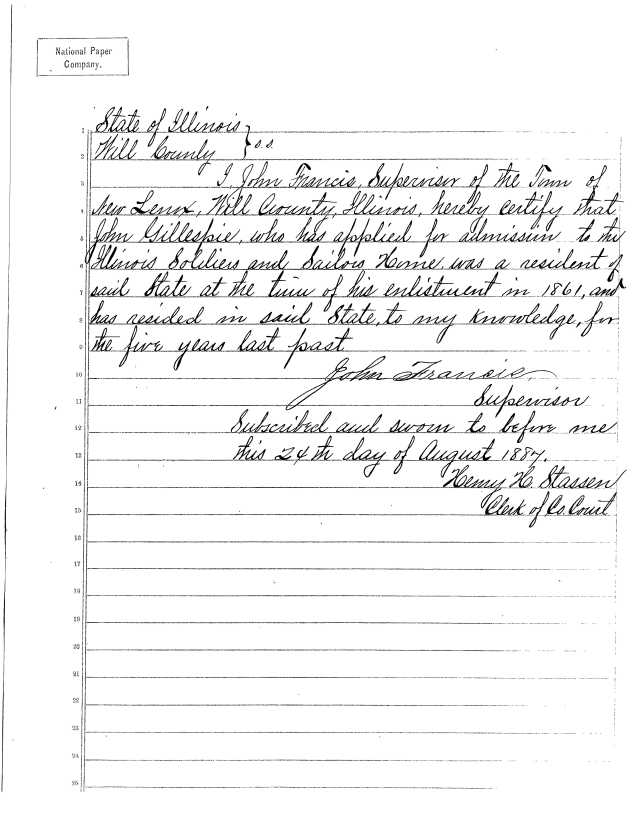 National Paper
Company.
1 State of Illinois }
2 Will County } s.s.
3 I, John Francis, Supervisor of the Town of
4 New Lenox, Will County, Illinois, hereby certify that
5 John Gillespie, who has applied for admission to the
6 Illinois Soldiers and Sailors Home, was a resident of
7 said State at the time of his enlistment in 1861, and
8 has resided in said State, to my knowledge, for
9 the five years last past
10 John Francis.
11 Supervisor
12 Subscribed and sworn to before me
13 this 24th day of August 1887.
14 Henry H. Stassen
15 Clerk of Co. Court
16
17
18
19
20
21
22
23
24
25